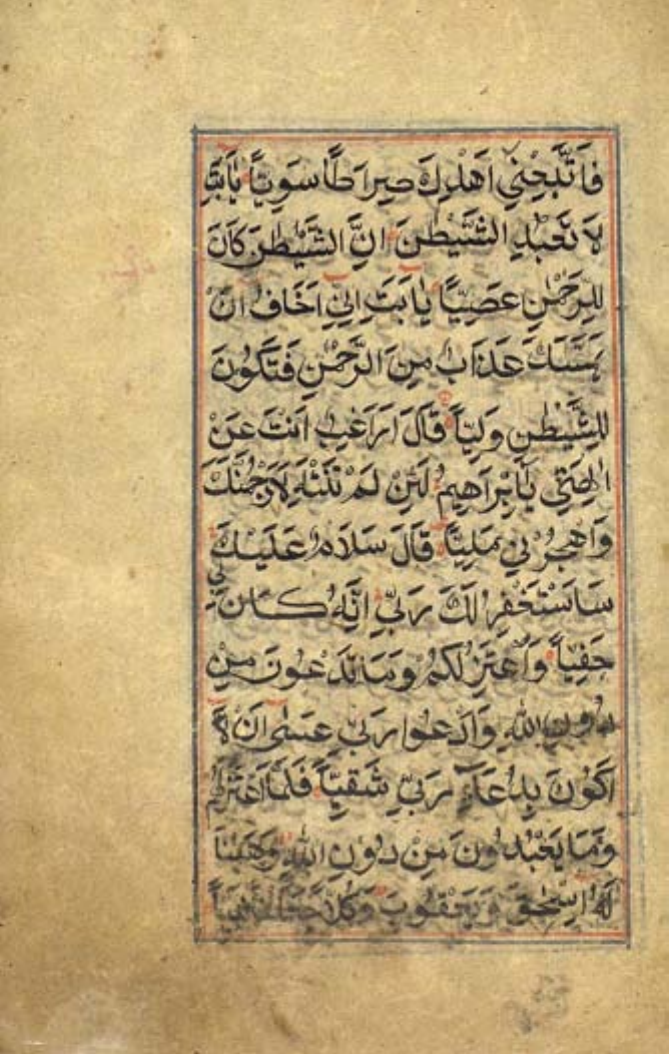 فَاتَّبِعْنِي اَهْدِكَ صِرَاطًا سَوِيًّا يَا اَبَتِ
لَا تَعْبُدِ الشَّيْطٰنَ اِنَّ الشَّيْطٰنَ كَانَ
لِلرَّحْمٰنِ عَصِيًّا يَا اَبَتِ اِنِّي اَخَافُ اَنْ
يَمَسَّكَ عَذَابٌ مِنَ الرَّحْمٰنِ فَتَكُونَ
لِلشَّيْطٰنِ وَلِيًّا قَالَ اَرَاغِبٌ اَنْتَ عَنْ
اٰلِهَتِي يَا اِبْرَاهِيمُ لَئِنْ لَمْ تَنْتَهِ لَاَرْجُمَنَّكَ
وَاهْجُرْنِي مَلِيًّا قَالَ سَلَامٌ عَلَيْكَ
سَاَسْتَغْفِرُ لَكَ رَبِّي اِنَّهُ كَانَ بِي
حَفِيًّا وَاَعْتَزِلُكُمْ وَمَا تَدْعُونَ مِنْ
دُونِ اللّٰهِ وَاَدْعُوا رَبِّي عَسٰى اَنْ لَا
اَكُونَ بِدُعَاءِ رَبِّي شَقِيًّا فَلَمَّا اعْتَزَلَهُمْ
وَمَا يَعْبُدُونَ مِنْ دُونِ اللّٰهِ وَهَبْنَا
لَهُ اِسْحٰقَ وَيَعْقُوبَ وَكُلًّا جَعَلْنَا نَبِيًّا